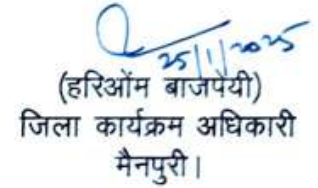 25/1/2025
(हरिओम बाजपेयी)
जिला कार्यक्रम अधिकारी
मैनपुरी।